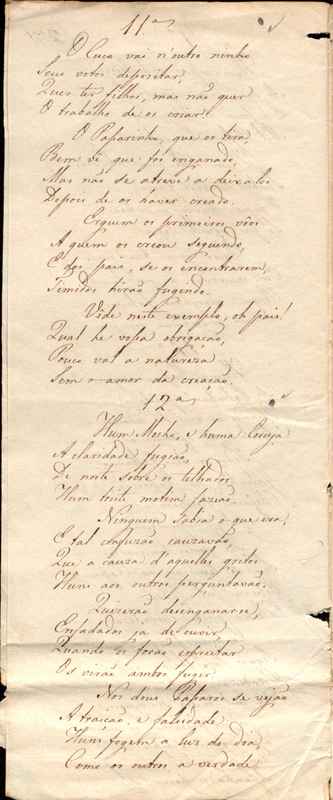 11ª
O Cuco vai n'outro ninho
Seus ovos depositar,
Quer ter filhos, mas não quer
O trabalho de os criar.
O Passarinho, que os tira,
Bem vê que foi enganado,
Mas não se atreve a deixalos
Depois de os haver creado.
Erguem os primeiros vôos
A quem os creou seguindo,
E dos pais, se os encontrarem,
Timidos hirão fugindo.
Vêde neste exemplo, oh pais!
Qual he vossa obrigação,
Pouco val a natureza
Sem o amor da creação.
12ª
Hum Mocho, e huma Coruja
A claridade fugião,
De noite sobre os telhados
Hum triste motim fazião
Ninguem sabia o que era,
E tal confusão cauzavão,
Que a cauza d'aquelles gritos
Huns aos outros perguntavão.
Quizerão desenganarse,
Enfadados ja de ouvir
Quando os forão espreitar
Os virão ambos fugir
Nos dous Passaros se vejão
A traição, e falsidade
Huns fogem a luz do dia,
Como os outros a verdade